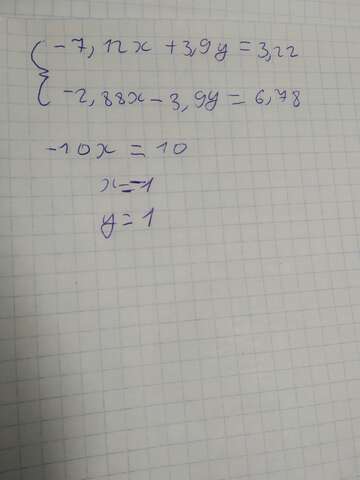 -7,12x + 3,9y = 3,22
-2,88x - 3,9y = 6,78
-10x = 10
x = -1
y = 1